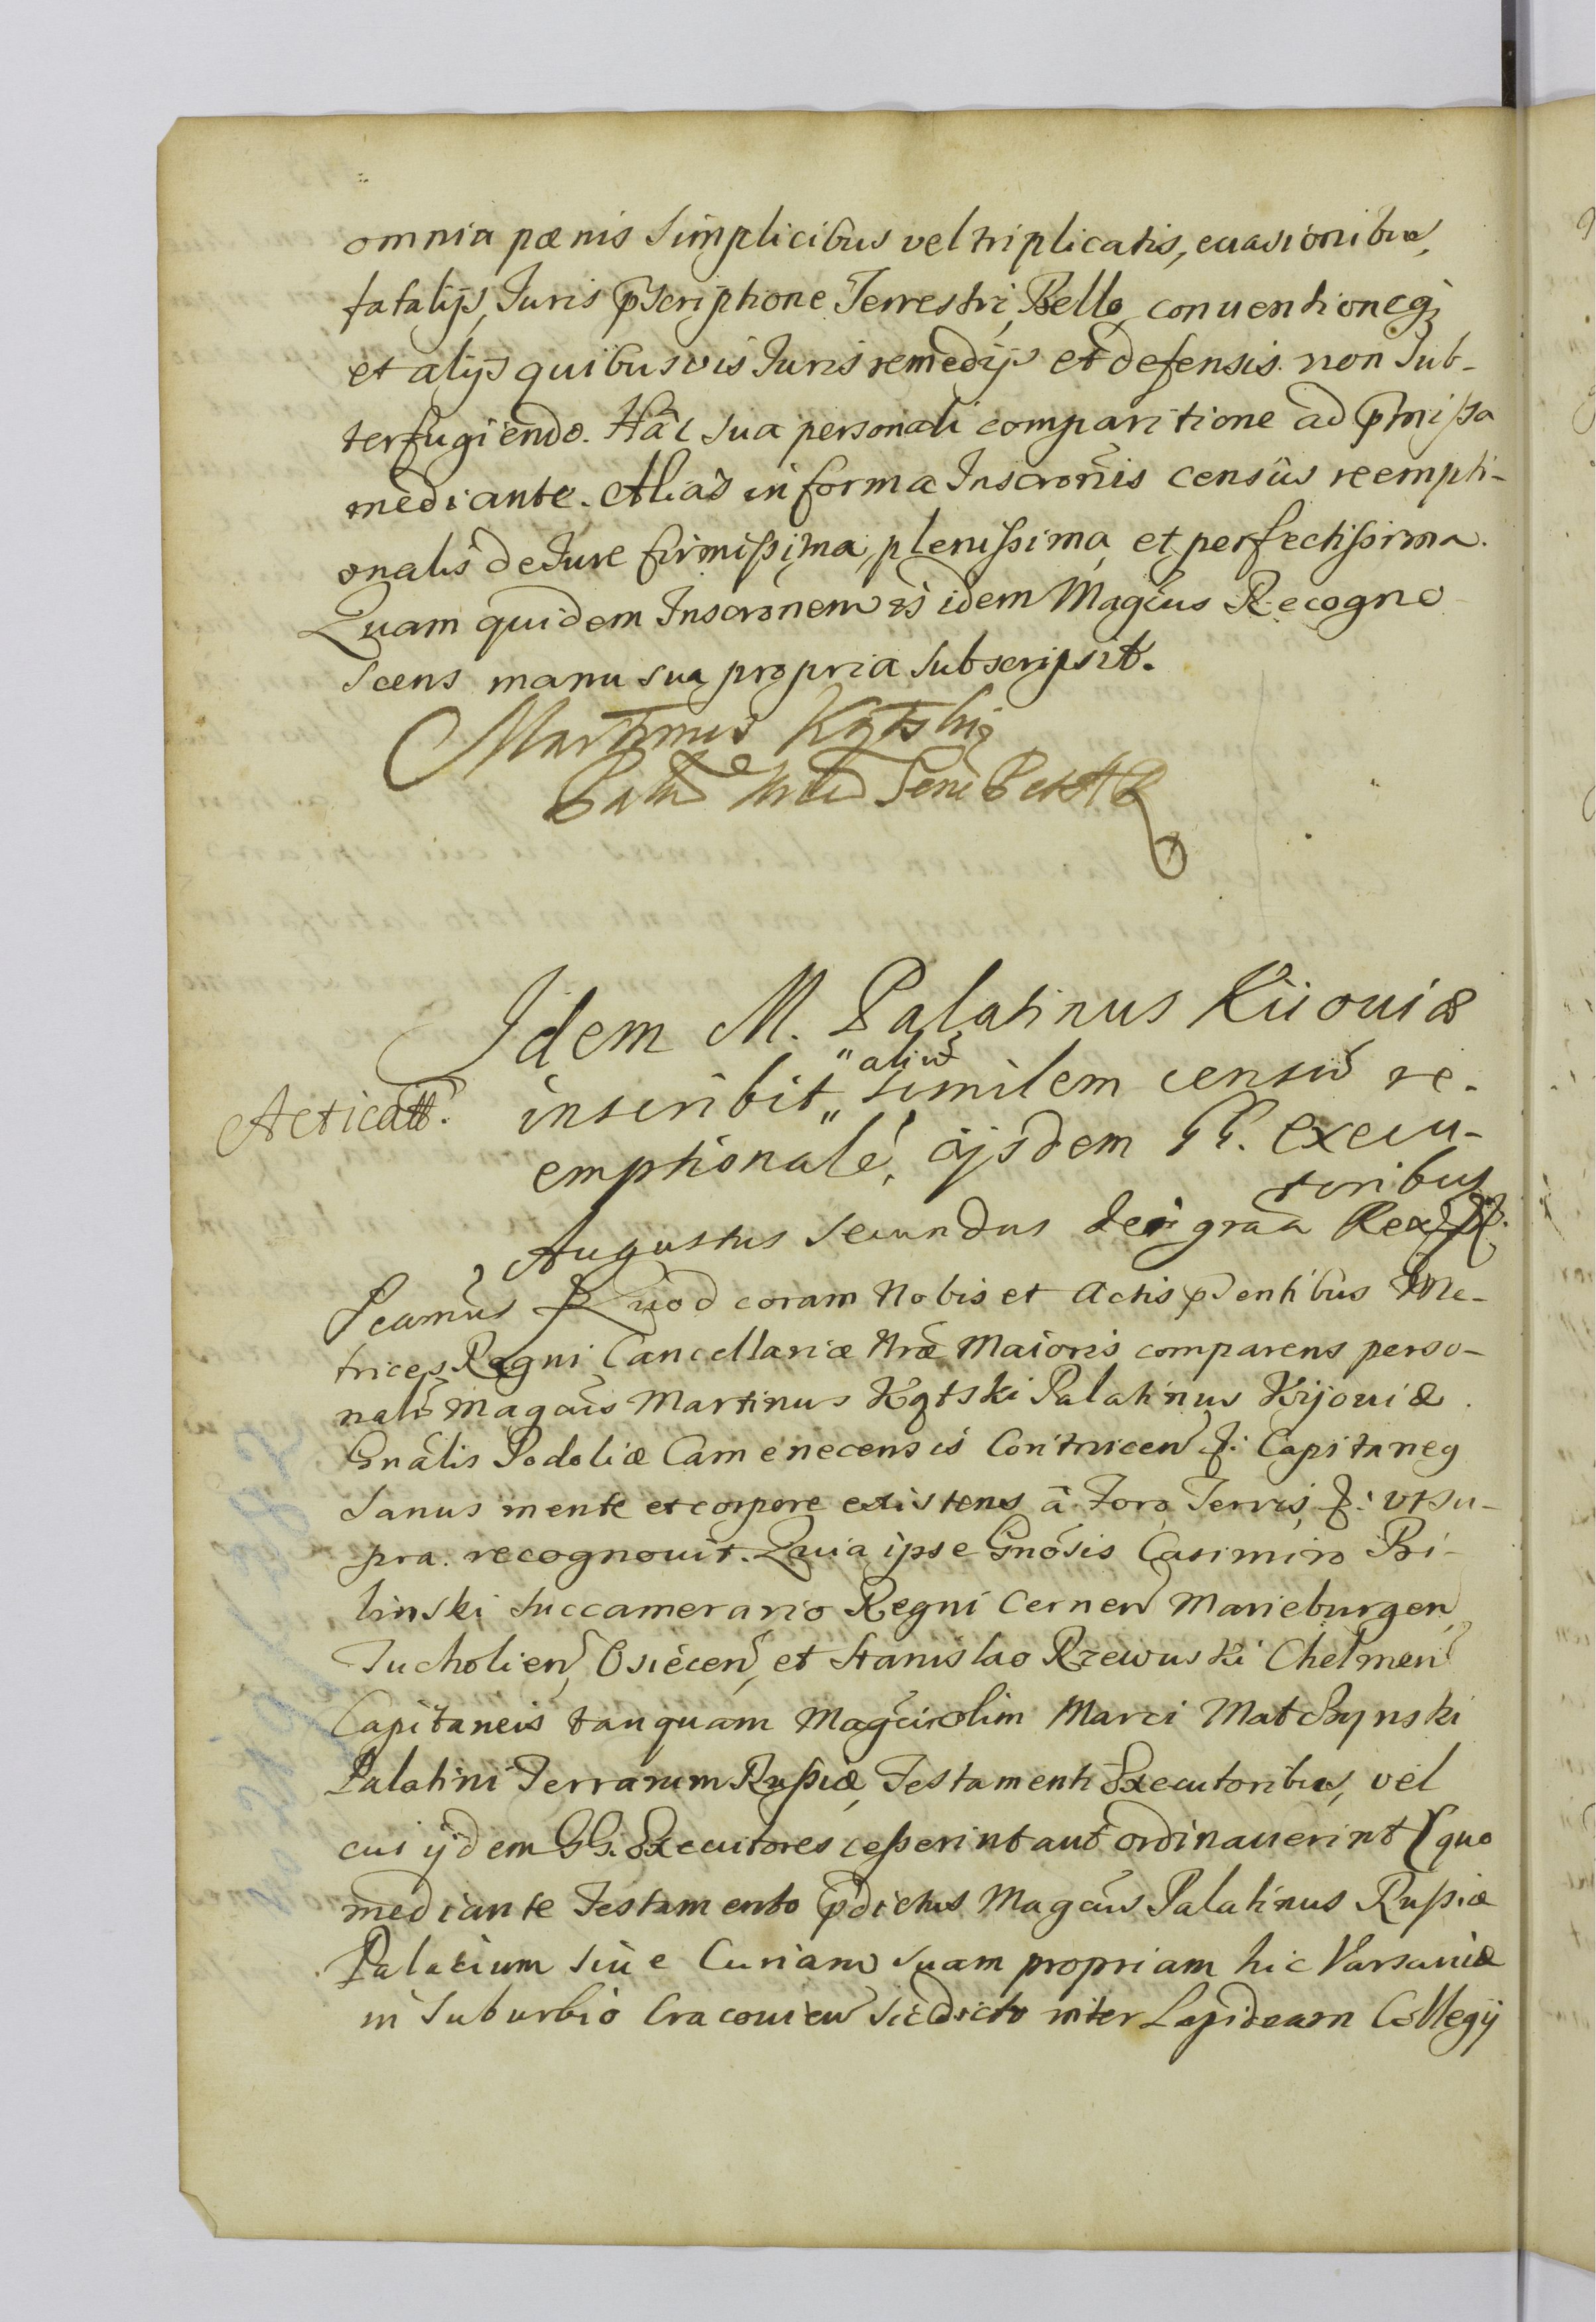 omnia pœnis simplicibus vel triplicatis, euasionibus,
fatalijs, Juris p̄scriptione Terrestri, Bello conuentioneq;
et alijs quibusvis Juris remedijs et defensis non sub-
terfugiendo. Hâc sua personali comparitione ad p̄missa
mediante. Aliàs in forma Inscrōnis censûs reempti-
onalis de Jure firmissima, plenissima et perfectissima.
Quam quidem Inscrōnem is idem Magcus Recogno
scens manu sua propria subscripsit.
Martinus Kątski
Idem M. Palatinus Kiiouiæ
Acticatt.
inscribit " aliū similem censū re-
emptionalē, ijsdem GG. execu-
toribus
Augustus secundus dei graa Rex P.
Scamus Quod coram Nobis et Actis p̄sentibus Me-
trices Regni Cancellariæ Nræ Maioris comparens perso-
nalr Magcus Martinus Kątski Palatinus Kijouiæ
Gnâlis Podoliæ Camenecensis Capitaneg
sanus mente et corpore existens à Foro Terris, &: vt su-
pra. recognouit. Quia ipse Gnôsis Casimiro Bi-
linski Succamerario Regni Cernen Marieburgen
Tucholien, Osiecen, et Stanislao Rzewuski Chelmen
Capitaneis tanquam Magci olim Marci Matczynski
Palatini Terrarum Russiæ, Testamenti Executoribus, vel
cui ijdem GG. Executores cesserint aut ordinauerint (quo
mediante Testamento p̄dictus Magcus Palatinus Russiæ
Palatium siue Curiam suam propriam hic Varsauiæ
in suburbio Cracouien sic dicto inter Lapideam Collegij